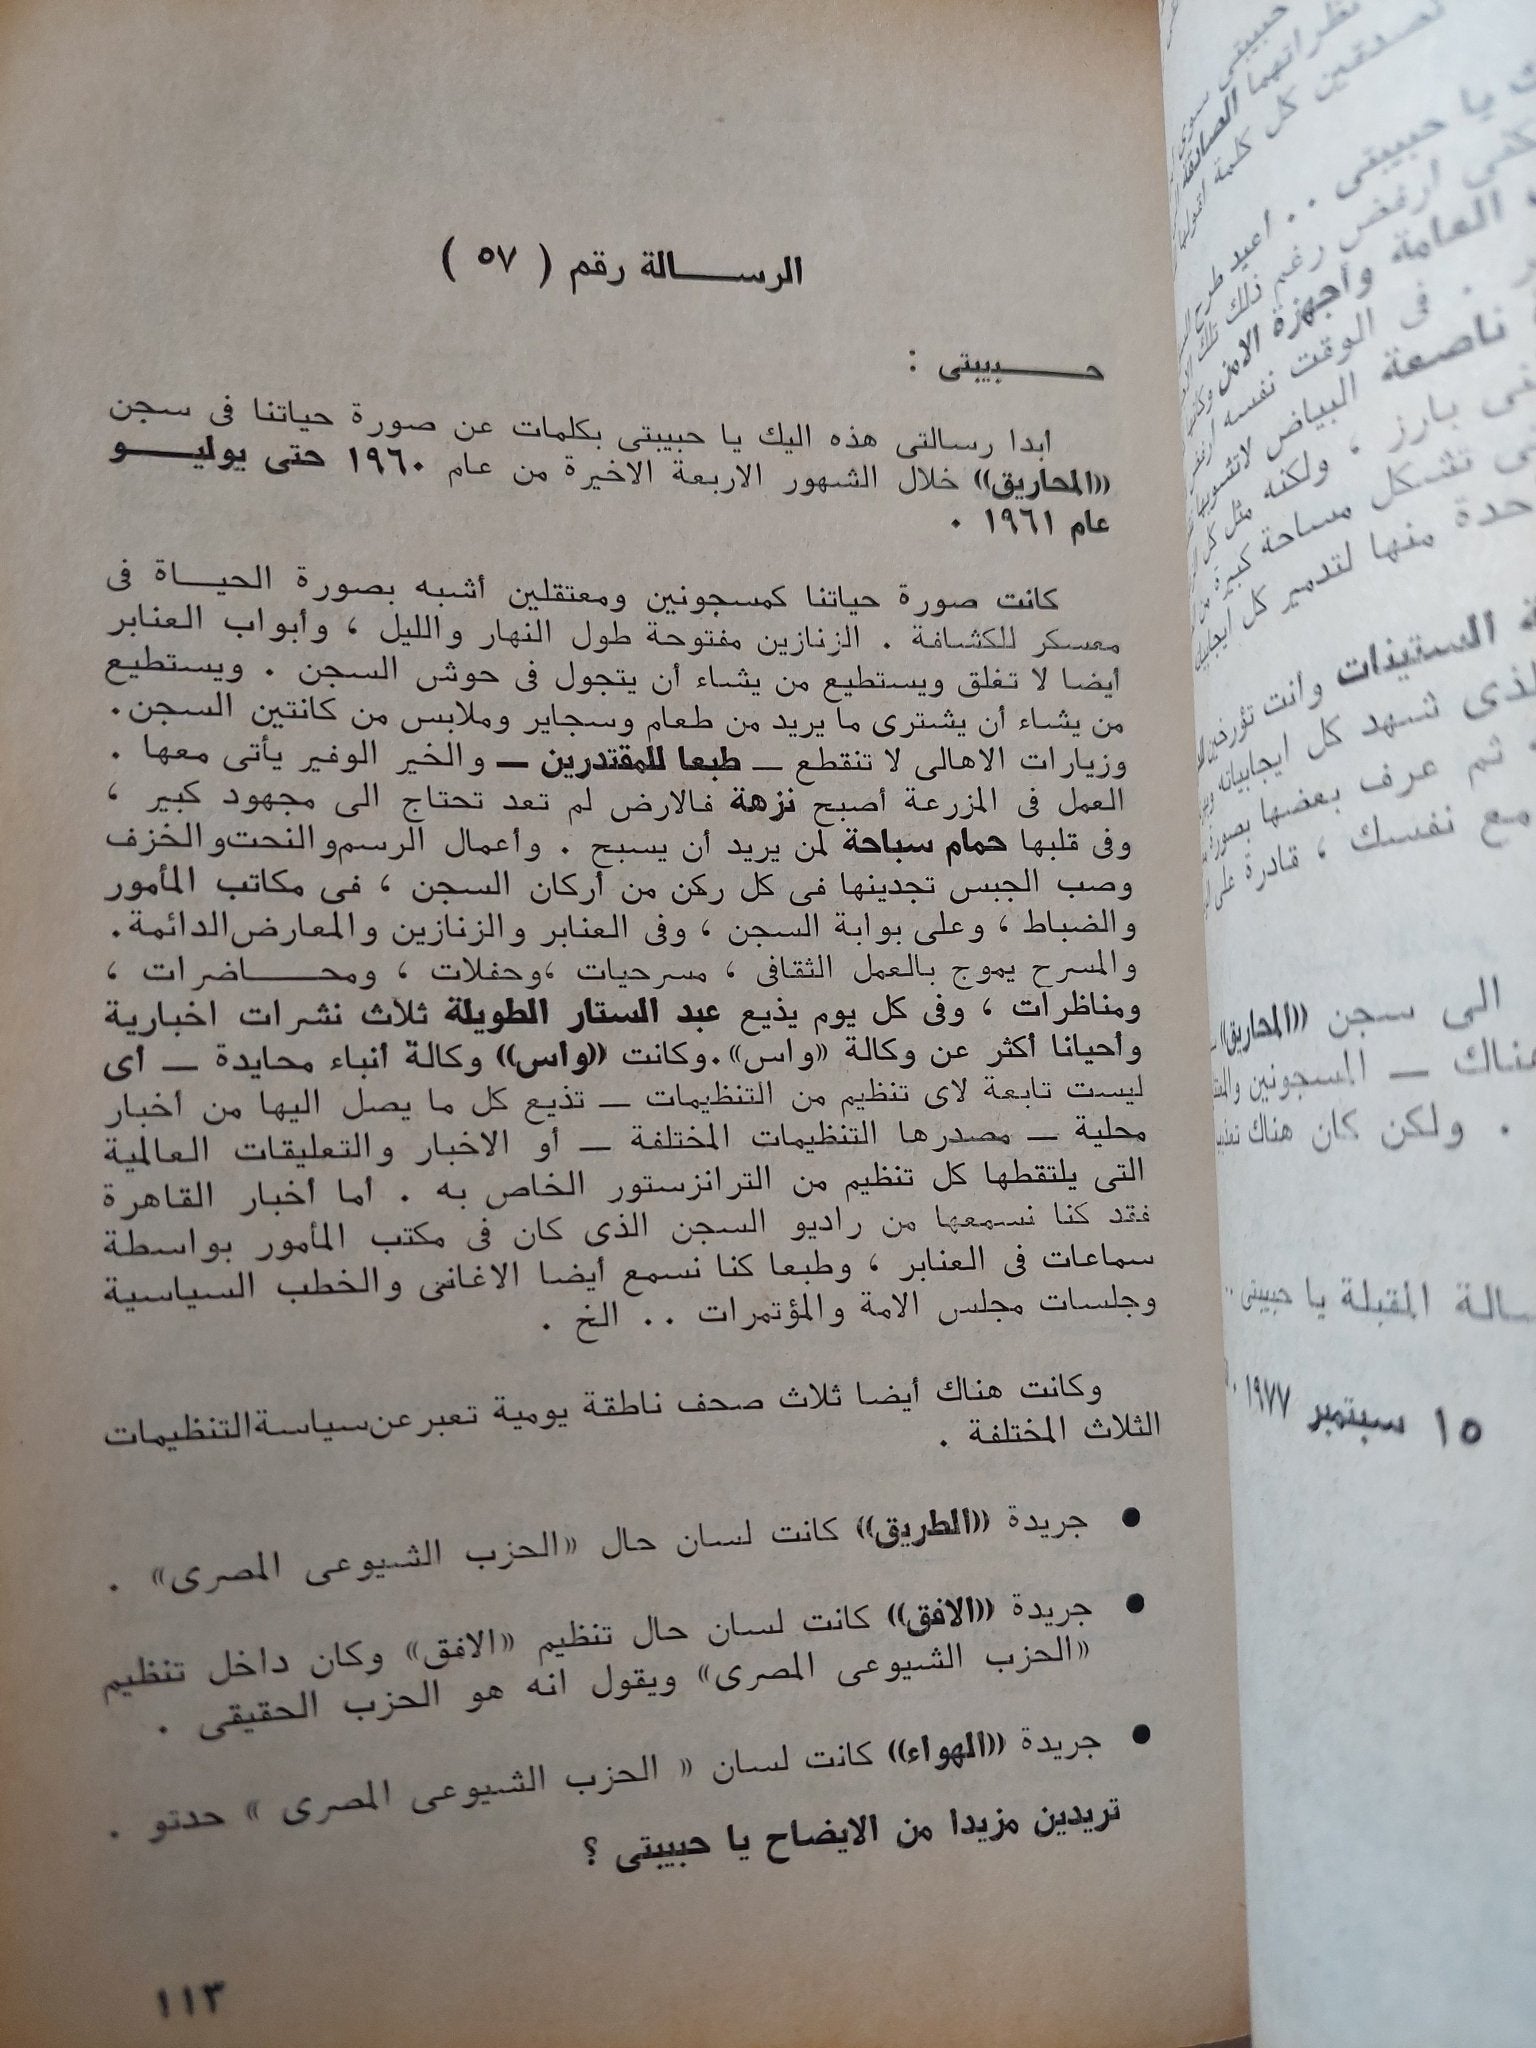 الرسالة رقم ( ٥٧ )
حبيبتى :
أبدا رسالتى هذه اليك يا حبيبتى بكلمات عن صورة حياتنا فى سجن
((المحاريق)) خلال الشهور الاربعة الاخيرة من عام ١٩٦٠ حتى يوليو
عام ١٩٦١ .
كانت صورة حياتنا كمسجونين ومعتقلين أشبه بصورة الحياة فى
معسكر للكشافة . الزنازين مفتوحة طول النهار والليل ، وأبواب العنابر
أيضا لا تغلق ويستطيع من يشاء أن يتجول فى حوش السجن . ويستطيع
من يشاء أن يشترى ما يريد من طعام وسجاير وملابس من كانتين السجن .
وزيارات الاهالى لا تنقطع — طبعا للمقتدرين — والخير الوفير يأتى معها .
العمل فى المزرعة أصبح نزهة فالارض لم تعد تحتاج الى مجهود كبير ،
وفى قلبها حمام سباحة لمن يريد أن يسبح . وأعمال الرسم والنحت والخزف
وصب الجبس تجدينها فى كل ركن من أركان السجن ، فى مكاتب المأمور
والضباط ، وعلى بوابة السجن ، وفى العنابر والزنازين والمعارض الدائمة .
والمسرح يموج بالعمل الثقافى ، مسرحيات ،وحفلات ، ومحاضرات ،
ومناظرات ، وفى كل يوم يذيع عبد الستار الطويلة ثلاث نشرات اخبارية
وأحيانا أكثر عن وكالة «واس» .وكانت ((وأس)) وكالة أنباء محايدة — أى
ليست تابعة لاى تنظيم من التنظيمات — تذيع كل ما يصل اليها من أخبار
محلية — مصدرها التنظيمات المختلفة — أو الاخبار والتعليقات العالمية
التى يلتقطها كل تنظيم من الترانزستور الخاص به . أما أخبار القاهرة
فقد كنا نسمعها من راديو السجن الذى كان فى مكتب المأمور بواسطة
سماعات فى العنابر ، وطبعا كنا نسمع أيضا الاغانى والخطب السياسية
وجلسات مجلس الامة والمؤتمرات .. الخ .
وكانت هناك أيضا ثلاث صحف ناطقة يومية تعبر عن سياسة التنظيمات
الثلاث المختلفة .
● جريدة ((الطريق)) كانت لسان حال «الحزب الشيوعى المصرى» .
● جريدة ((الافق)) كانت لسان حال تنظيم «الافق» وكان داخل تنظيم
«الحزب الشيوعى المصرى» ويقول انه هو الحزب الحقيقى .
● جريدة ((الهواء)) كانت لسان « الحزب الشيوعى المصرى » حدتو .
تريدين مزيدا من الايضاح يا حبيبتى ؟
١١٣
حبيبتى سوى
نظراتهما الصادقة
تصدقين كل كلمة اقولها
يا حبيبتى .. اعيد طرح
أرفض رغم ذلك تلك
العامة وأجهزة الامن وكتب
. فى الوقت نفسه أرفض
ناصعة البياض لاتشوبها
بارز ، ولكنه مثل كل
تشكل مساحة كبيرة من
حدة منها لتدمير كل
الستينات وانت تؤرخين
لذى شهد كل ايجابياته
ثم عرف بعضها بصورة
مع نفسك ، قادرة على
الى سجن ((المحاريق))
هناك — المسجونين
. ولكن كان هناك
سالة المقبلة يا حبيبتى ..
١٥ سبتمبر ١٩٧٧